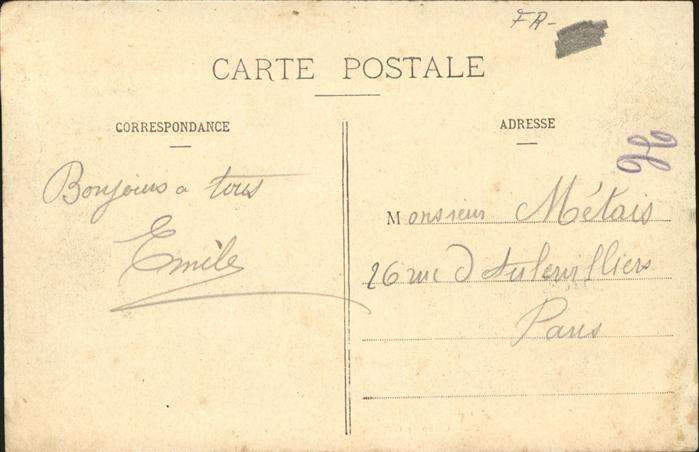 FR-
CARTE POSTALE
CORRESPONDANCE
ADRESSE
Bonjours a tous
Emile
Monsieur Métais
26 rue d'Aubervilliers
Paris